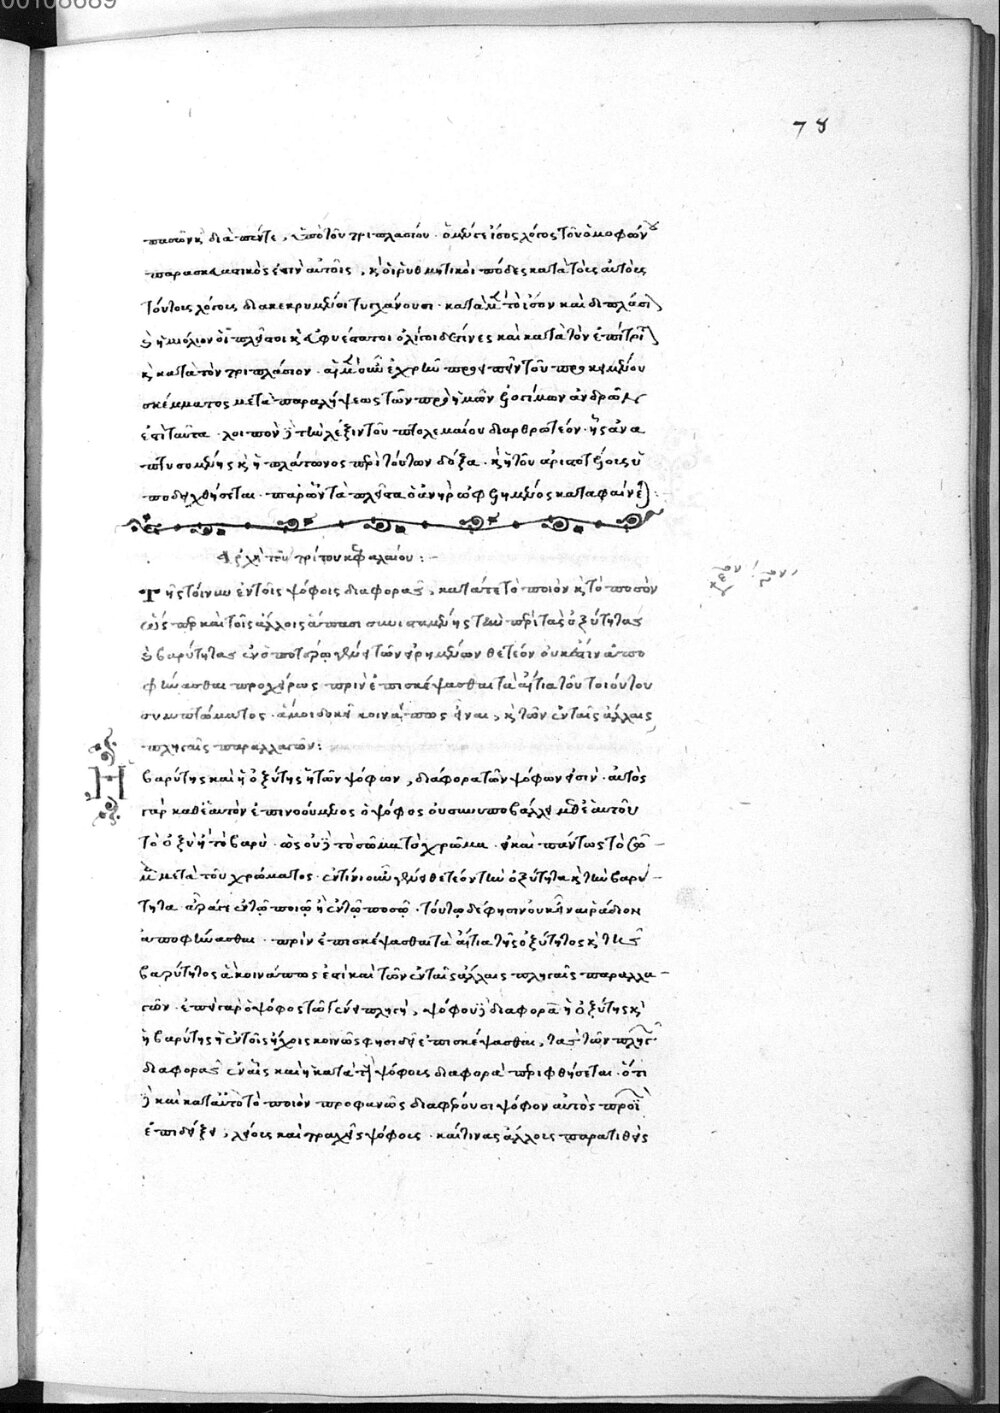 00108689
78
πασῶν κ διὰ πέντε, ἀπὸ τοῦ τριπλασίου. ὁ μέντε ἴσος λόγος τῶν ὁμοφών
παρασκευατικὸς ἐστὶν αὐτοῖς, κ οἱ ῥυθμητικοὶ πόδες κατὰ τοὺς αὐτοὺς
τούτοις λόγοις διακεκριμένοι τυγχάνουσι. κατὰ μὲν τὸ ἴσον καὶ διπλάσι
κ ἡμιόλιον οἱ πλεῖστοι κ εὐφυέστατοι ὀλίγοι δέ τινες καὶ κατὰ τὸν ἐπίτρι
κ κατὰ τὸν τριπλάσιον. ἃ μὲν οὖν ἐχρῆν προειπεῖν τοῦ προκειμένου
σκέμματος μετὰ παραλήψεως τῶν πρὸ ἡμῶν ἀνδρῶν
ἐστὶ ταῦτα. λοιπὸν δὲ τὴν λέξιν τοῦ πτολεμαίου διαρθρωτέον. ἧς ἀνα
πτυσσομένης κ ἡ πλάτωνος περὶ τούτων δόξα. κ ἡ τοῦ ἀριστοτέλους ὑ
ποδειχθήσεται. παρ' ὧν τὰ πλεῖστα ὁ ἀνὴρ ὠφελημένος καταφαίνε
Ἀρχὴ τοῦ τρίτου κεφαλαίου:
Τῆς τοίνυν ἐν τοῖς ψόφοις διαφορᾶς, κατά τε τὸ ποιὸν κ τὸ ποσὸν
ὡς περ καὶ τοῖς ἄλλοις ἅπασι συνισταμένης τὴν περὶ τὰς ὀξύτητας
κ βαρύτητας ἐν ὁποτέρῳ γένει τῶν εἰρημένων θετέον οὐκ ἔστιν ἀπο
φήνασθαι προχείρως πρὶν ἐπισκέψασθαι τὰ αἴτια τοῦ τοιούτου
συμπτώματος. ἅ μοι δοκεῖ κοινά πως εἶναι, κ τῶν ἐν ταῖς ἄλλαις
πληγαῖς παραλλαγῶν:
Ἡ βαρύτης καὶ ἡ ὀξύτης ἡ τῶν ψόφων, διάφορα τῶν ψόφων εἰσίν. αὐτὸς
γὰρ καθ' ἑαυτὸν ἐπινοούμενος ὁ ψόφος οὐ συνυποβάλλει μεθ' ἑαυτοῦ
τὸ ὀξὺ ἢ τὸ βαρύ. ὡς οὐδὲ τὸ σῶμα τὸ χρῶμα. εἰ καὶ πάντως τὸ σῶ
μα μετὰ τοῦ χρώματος. ἐν τίνι οὖν γένει θετέον τὴν ὀξύτητα κ τὴν βαρύ
τητα ἆρά γε ἐν τῷ ποιῷ ἢ ἐν τῷ ποσῷ. τούτῳ δέ φησιν οὐκ εἶναι ῥᾴδιον
ἀποφήνασθαι. πρὶν ἐπισκέψασθαι τὰ αἴτια τῆς ὀξύτητος κ τῆς
βαρύτητος ἃ κοινά πως ἐστὶ καὶ τῶν ἐν ταῖς ἄλλαις πληγαῖς παραλλα
γῶν. ἐπεὶ γὰρ ὁ ψόφος τῷ γένει πληγή, ψόφου δὲ διαφορὰ ἡ ὀξύτης κ
ἡ βαρύτης ἡ ἐν τοῖς ἤχοις κοινῶς φησι δεῖ ἐπισκέψασθαι, τὰς τῶν πληγ
διαφορὰς ἐν αἷς καὶ ἡ κατὰ τ ψόφοις διαφορὰ περιφθήσεται. ὅτι
δὲ καὶ κατ' αὐτὸ τὸ ποιὸν προφανῶς διαφέρουσι ψόφον αὐτὸς προϊ
ἐπιδείξει, λείοις καὶ τραχεῖς ψόφοις. καί τινας ἄλλοις παρατιθείς